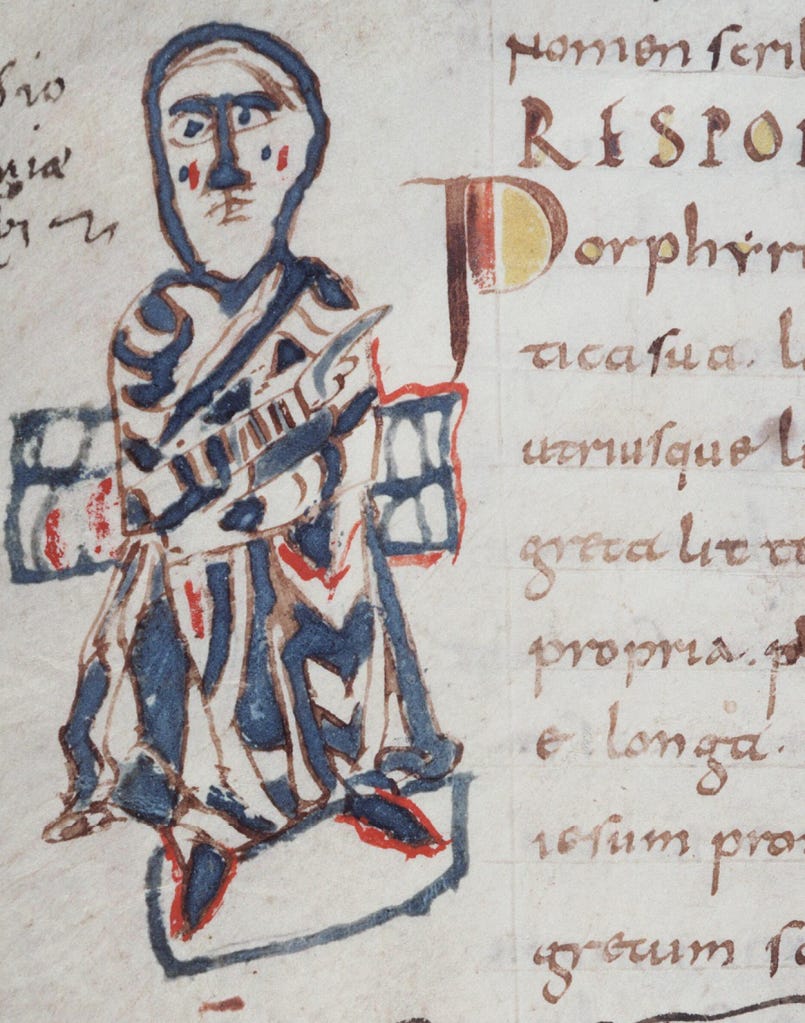 Nomen scrib
RESPON
Porphyri
ticasua. l
utriusque li
greca litte
propria. p
e longa.
iesum pro
grecum sc